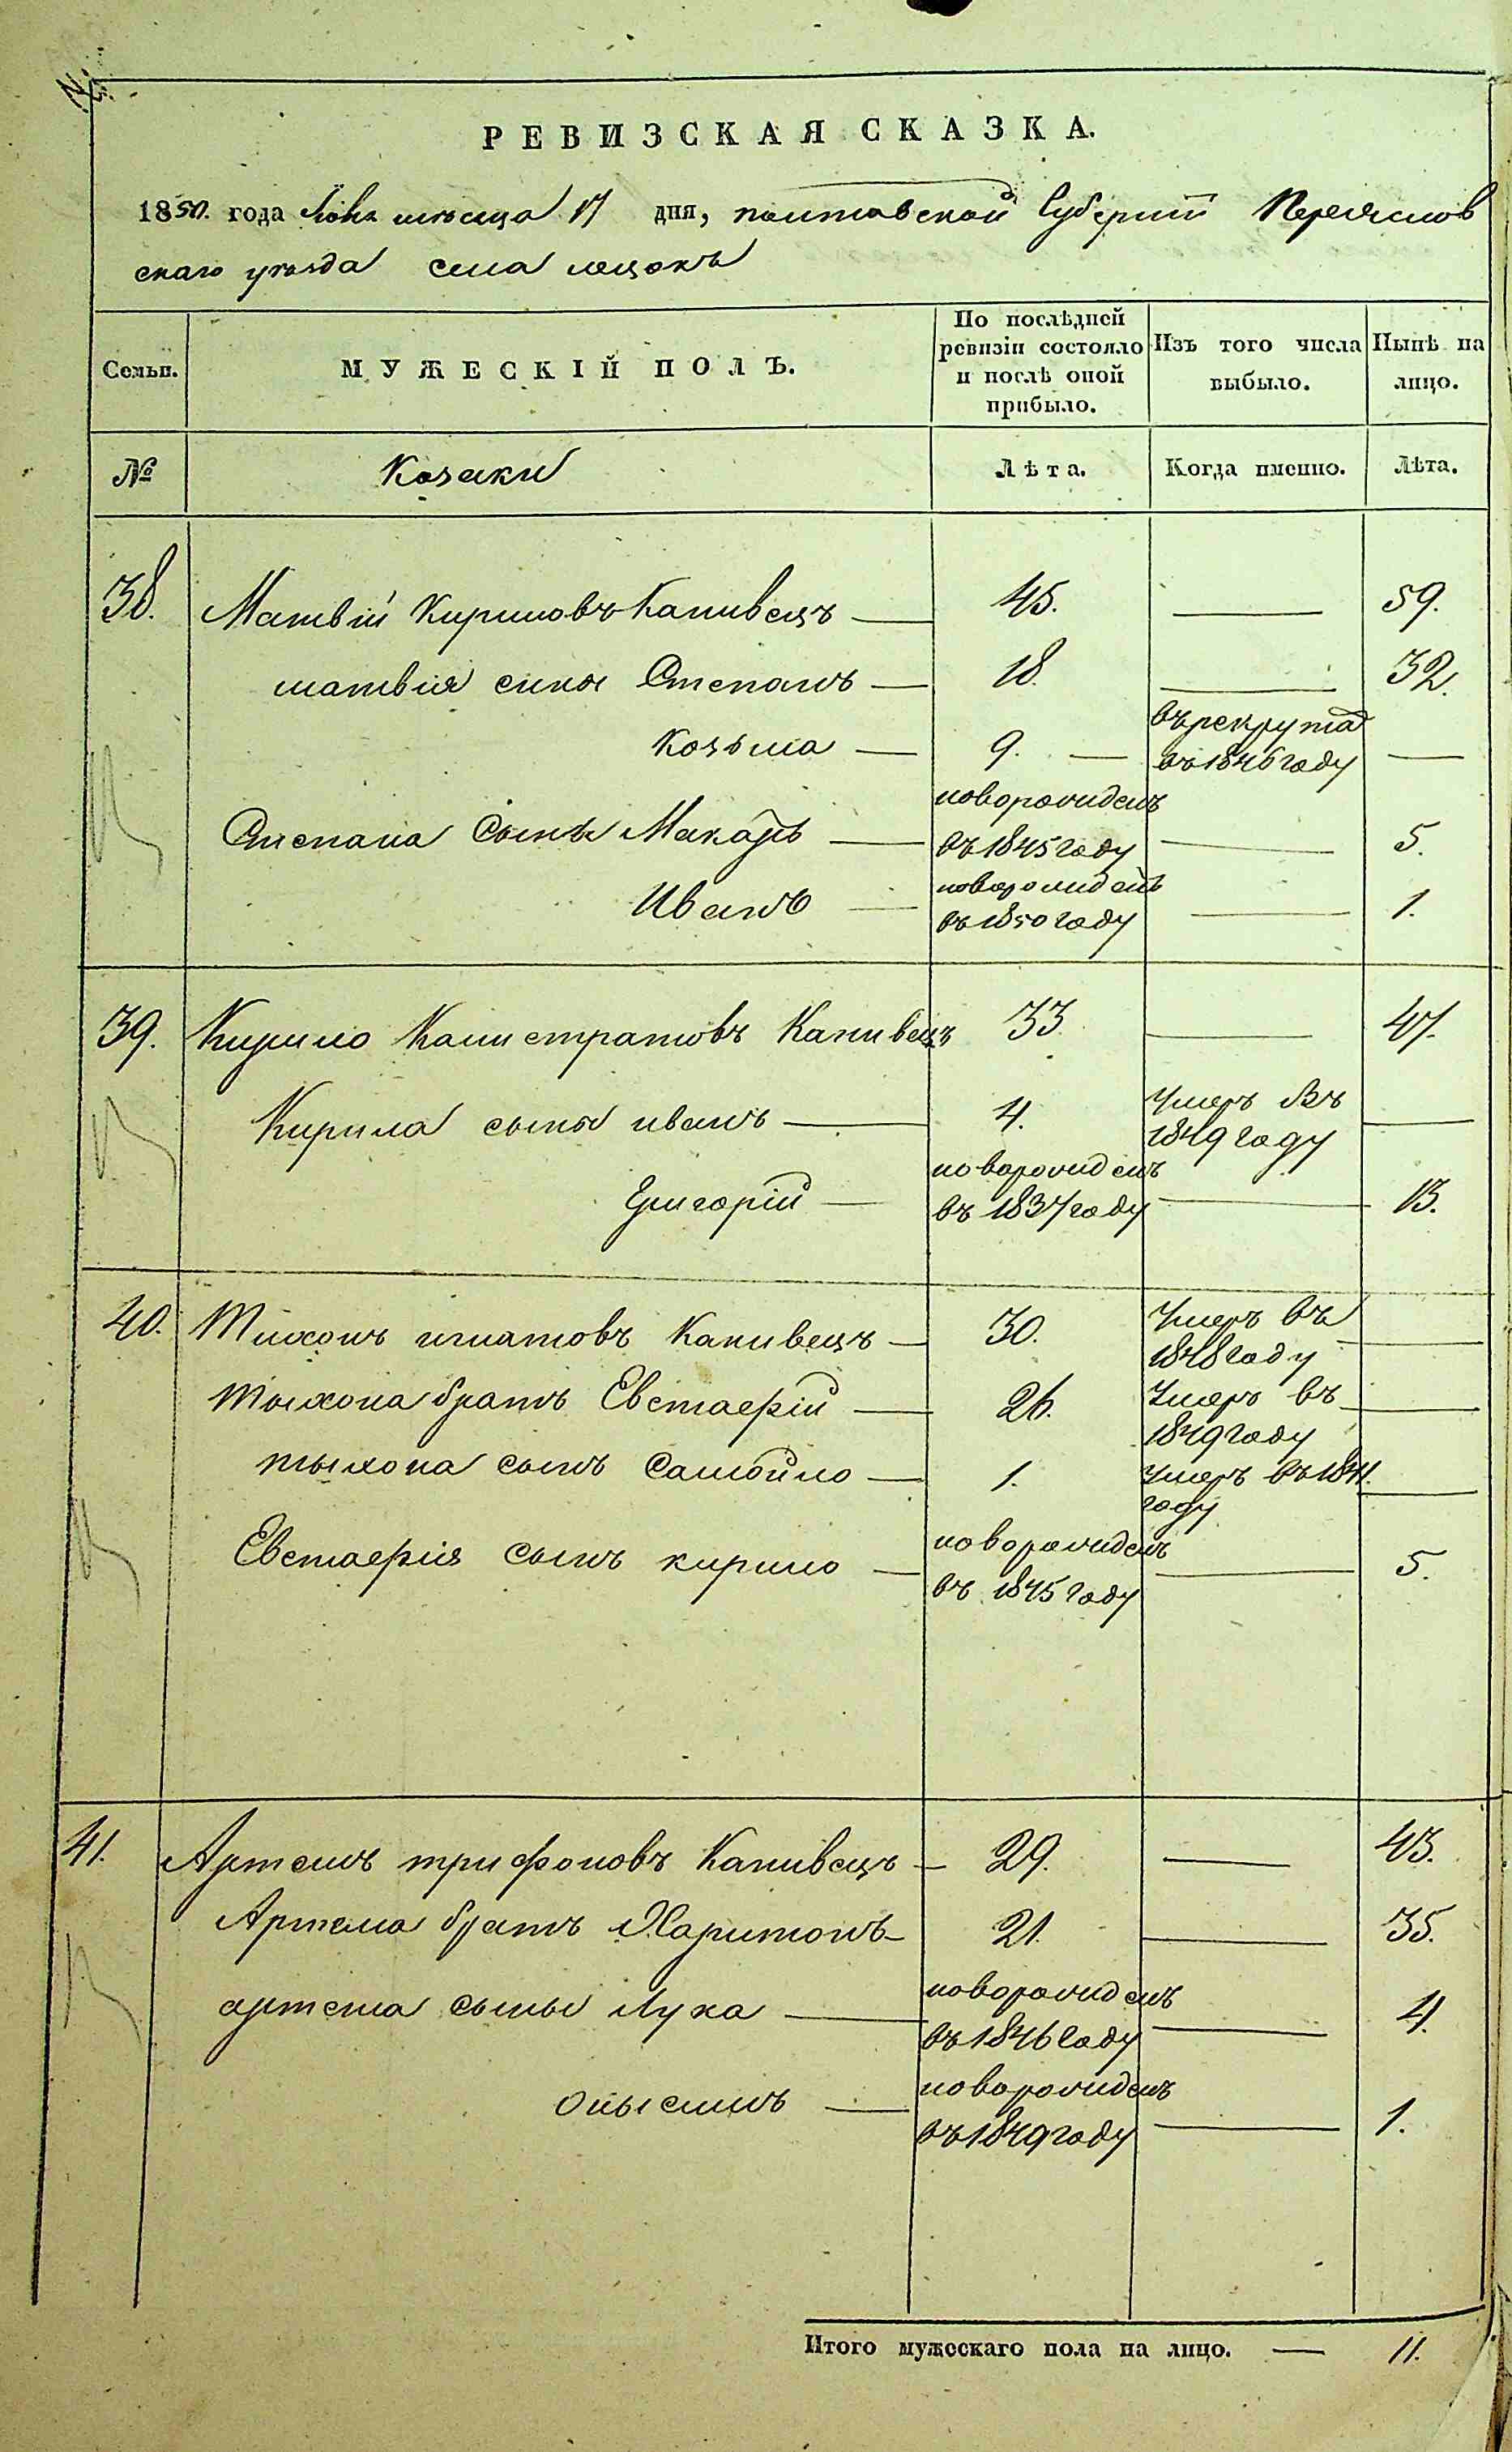 РЕВИЗСКАЯ СКАЗКА.
1850. года Июня месяца 17 дня, полтавской Губернии Переяслов
скаго уезда села
Семьи. МУЖЕСКІЙ ПОЛЪ. По послѣдней ревизіи состояло и послѣ оной прибыло. Изъ того числа выбыло. Нынѣ на лицо.
№ Козаки Лѣта. Когда именно. Лѣта.
38. Матвій Кириловъ Канивецъ — 45. — 59.
матвія сины Степанъ — 18. — 32.
Козьма — 9. — въ рекрута въ 1846 году —
Степана Сыны Макаръ — новорожденъ въ 1845 году — 5.
Иванъ — новорожденъ въ 1850 году — 1.
39. Кирило Калистратовъ Канивецъ 33. — 47.
Кирила сыны иванъ — 4. Умеръ Въ 1849 году —
Григорій — новорожденъ въ 1837 году — 13.
40. Тихонъ игнатовъ Канивецъ — 30. Умеръ въ 1848 году —
Тыхона братъ Евстафій — 26. Умеръ въ 1849 году —
тыхона сынъ Самойло — 1. Умеръ въ 1841. году —
Евстафія сынъ кирило — новорожденъ въ 1845 году — 5.
41. Артемъ трифоновъ Канивецъ — 29. — 43.
Артема братъ Харитонъ — 21. — 35.
артема сыны Лука — новорожденъ въ 1846 году — 4.
Онысимъ — новорожденъ въ 1849 году — 1.
Итого мужескаго пола на лицо. — 11.